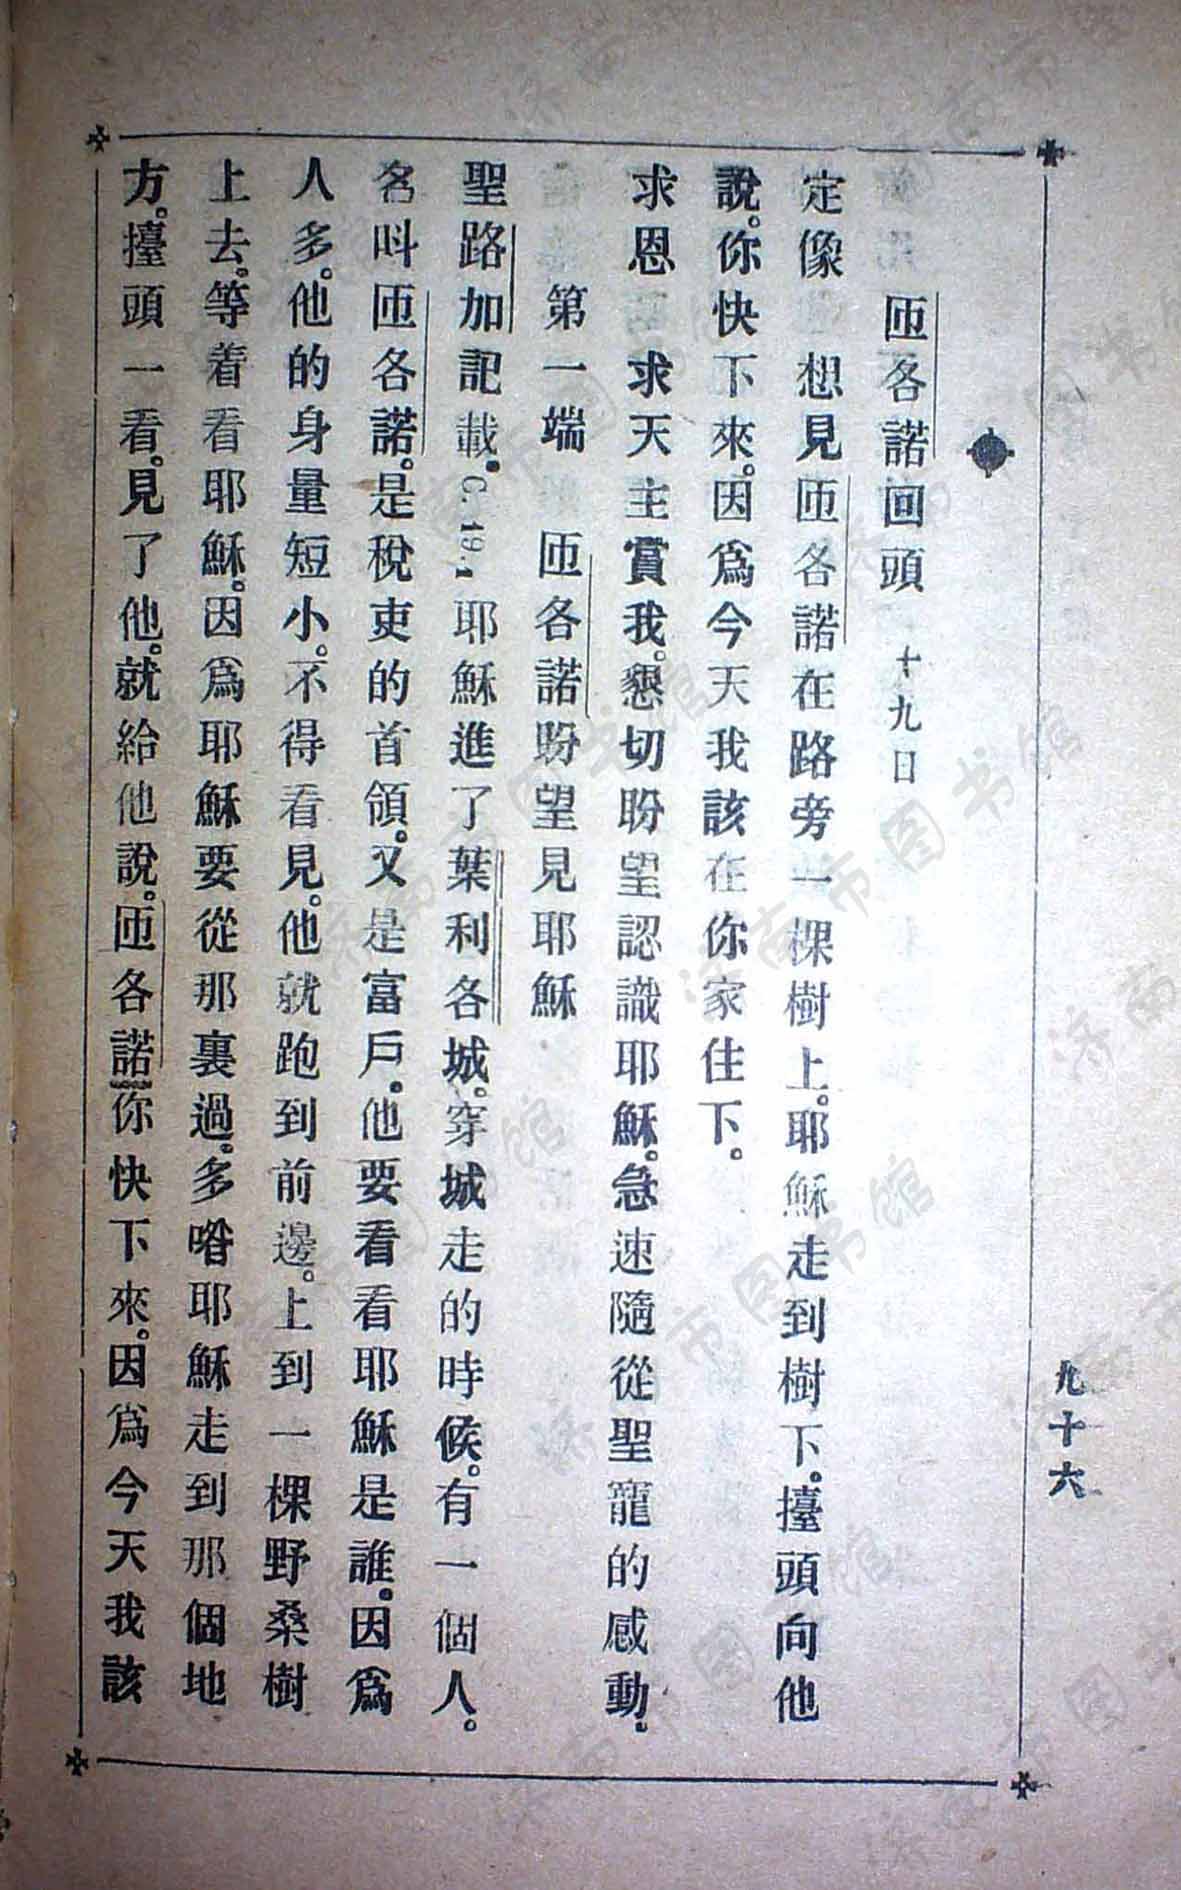 九十六
匝各諾回頭 十九日
定像 想見匝各諾在路旁一棵樹上。耶穌走到樹下。擡頭向他
說。你快下來。因爲今天我該在你家住下。
求恩 求天主賞我。懇切盼望認識耶穌。急速隨從聖寵的感動。
第一端 匝各諾盼望見耶穌
聖路加記載。C. 19.1 耶穌進了葉利各城。穿城走的時候。有一個人。
名呌匝各諾。是稅吏的首領。又是富戶。他要看看耶穌是誰。因爲
人多。他的身量短小。不得看見。他就跑到前邊。上到一棵野桑樹
上去。等着看耶穌。因爲耶穌要從那裏過。多喒耶穌走到那個地
方。擡頭一看。見了他。就給他說。匝各諾你快下來。因爲今天我該
济南市图书馆